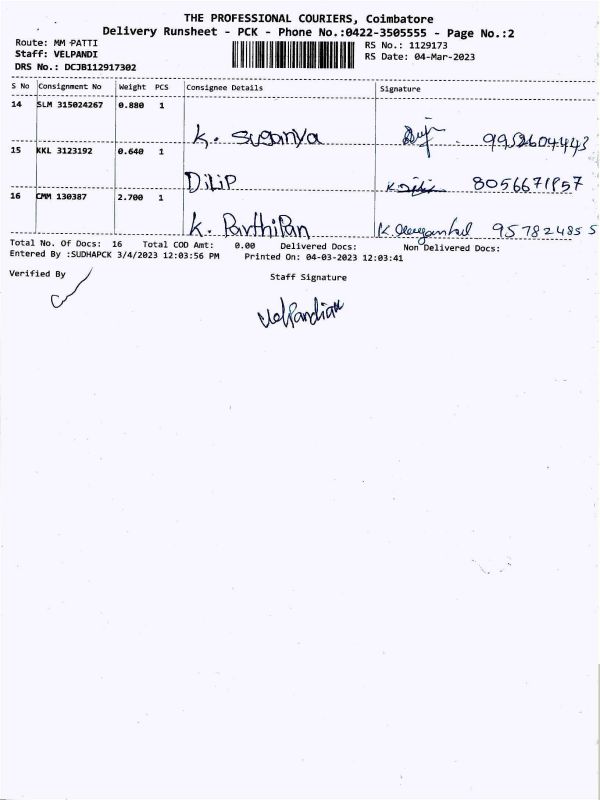 THE PROFESSIONAL COURIERS, Coimbatore
Delivery Runsheet - PCK - Phone No.:0422-3505555 - Page No.:2
Route: MM PATTI
Staff: VELPANDI
DRS No.: DCJB112917302
RS No.: 1129173
RS Date: 04-Mar-2023
S No Consignment No Weight PCS Consignee Details Signature
14 SLM 315024267 0.880 1
K. Suganya 9952604443
15 KKL 3123192 0.640 1
DiLiP 8056671957
16 CMM 130387 2.700 1
K. Parthipan K. 9578248555
Total No. Of Docs: 16 Total COD Amt: 0.00 Delivered Docs: Non Delivered Docs:
Entered By :SUDHAPCK 3/4/2023 12:03:56 PM Printed On: 04-03-2023 12:03:41
Verified By Staff Signature
VelPandian